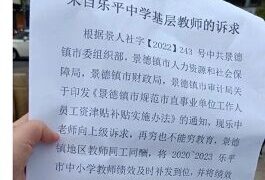 来自乐平中学基层教师的诉求
根据景人社字【2022】243 号中共景德
镇市委组织部,景德镇市人力资源和社会保
障局,景德镇市财政局,景德镇市审计局关
于印发《景德镇市规范市直事业单位工作人
员工资津贴补贴实施办法》的通知,现乐中
老师向上级诉求,再穷也不能穷教育,景德
镇地区教师同工同酬,将 2020~2023 乐平
市中小学教师绩效及时补发到位,并将绩效